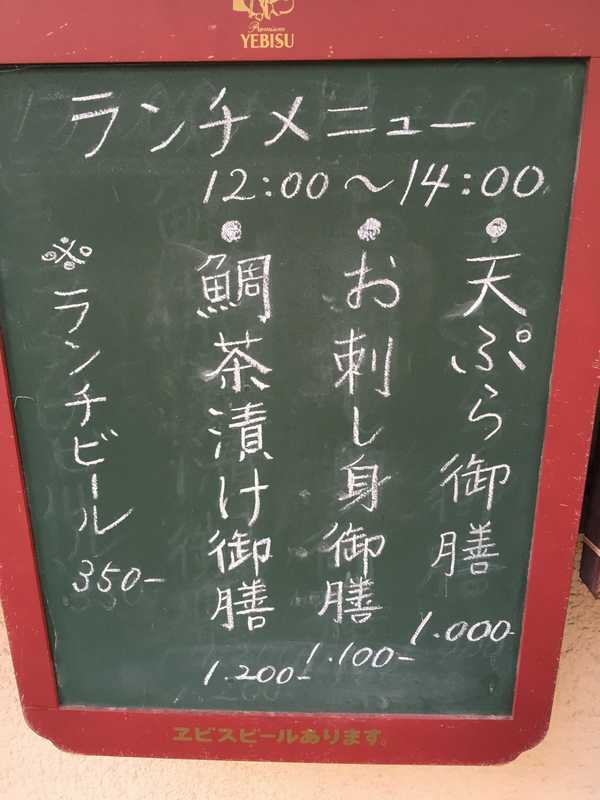 Premium
YEBISU
ランチメニュー
12:00～14:00
●天ぷら御膳
1.000-
●お刺し身御膳
1.100-
●鯛茶漬け御膳
1.200-
※ランチビール
350-
ヱビスビールあります。